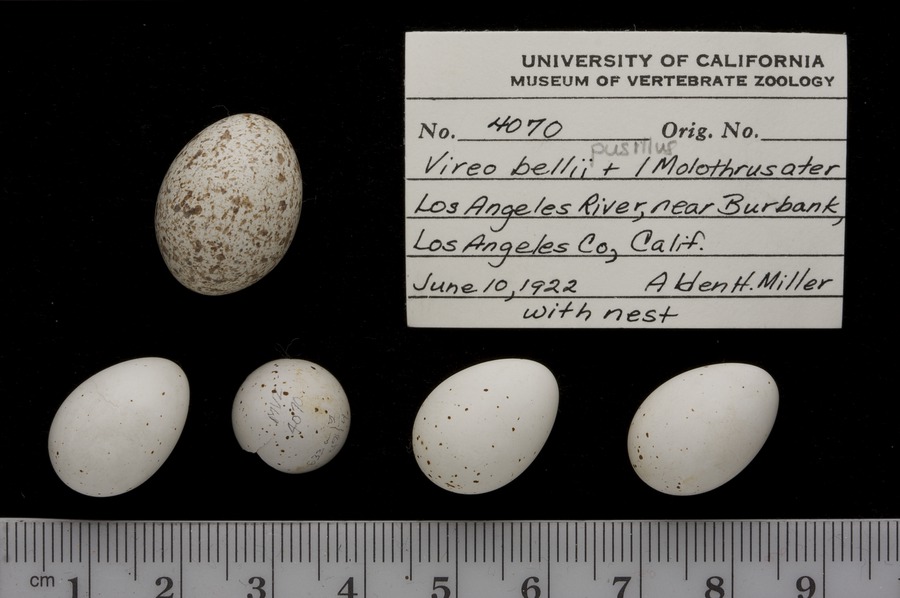 UNIVERSITY OF CALIFORNIA
MUSEUM OF VERTEBRATE ZOOLOGY
No. 4070 Orig. No.
pusillus
Vireo bellii + 1 Molothrus ater
Los Angeles River, near Burbank,
Los Angeles Co, Calif.
June 10, 1922 Alden H. Miller
with nest
MVZ
4070
cm 1 2 3 4 5 6 7 8 9